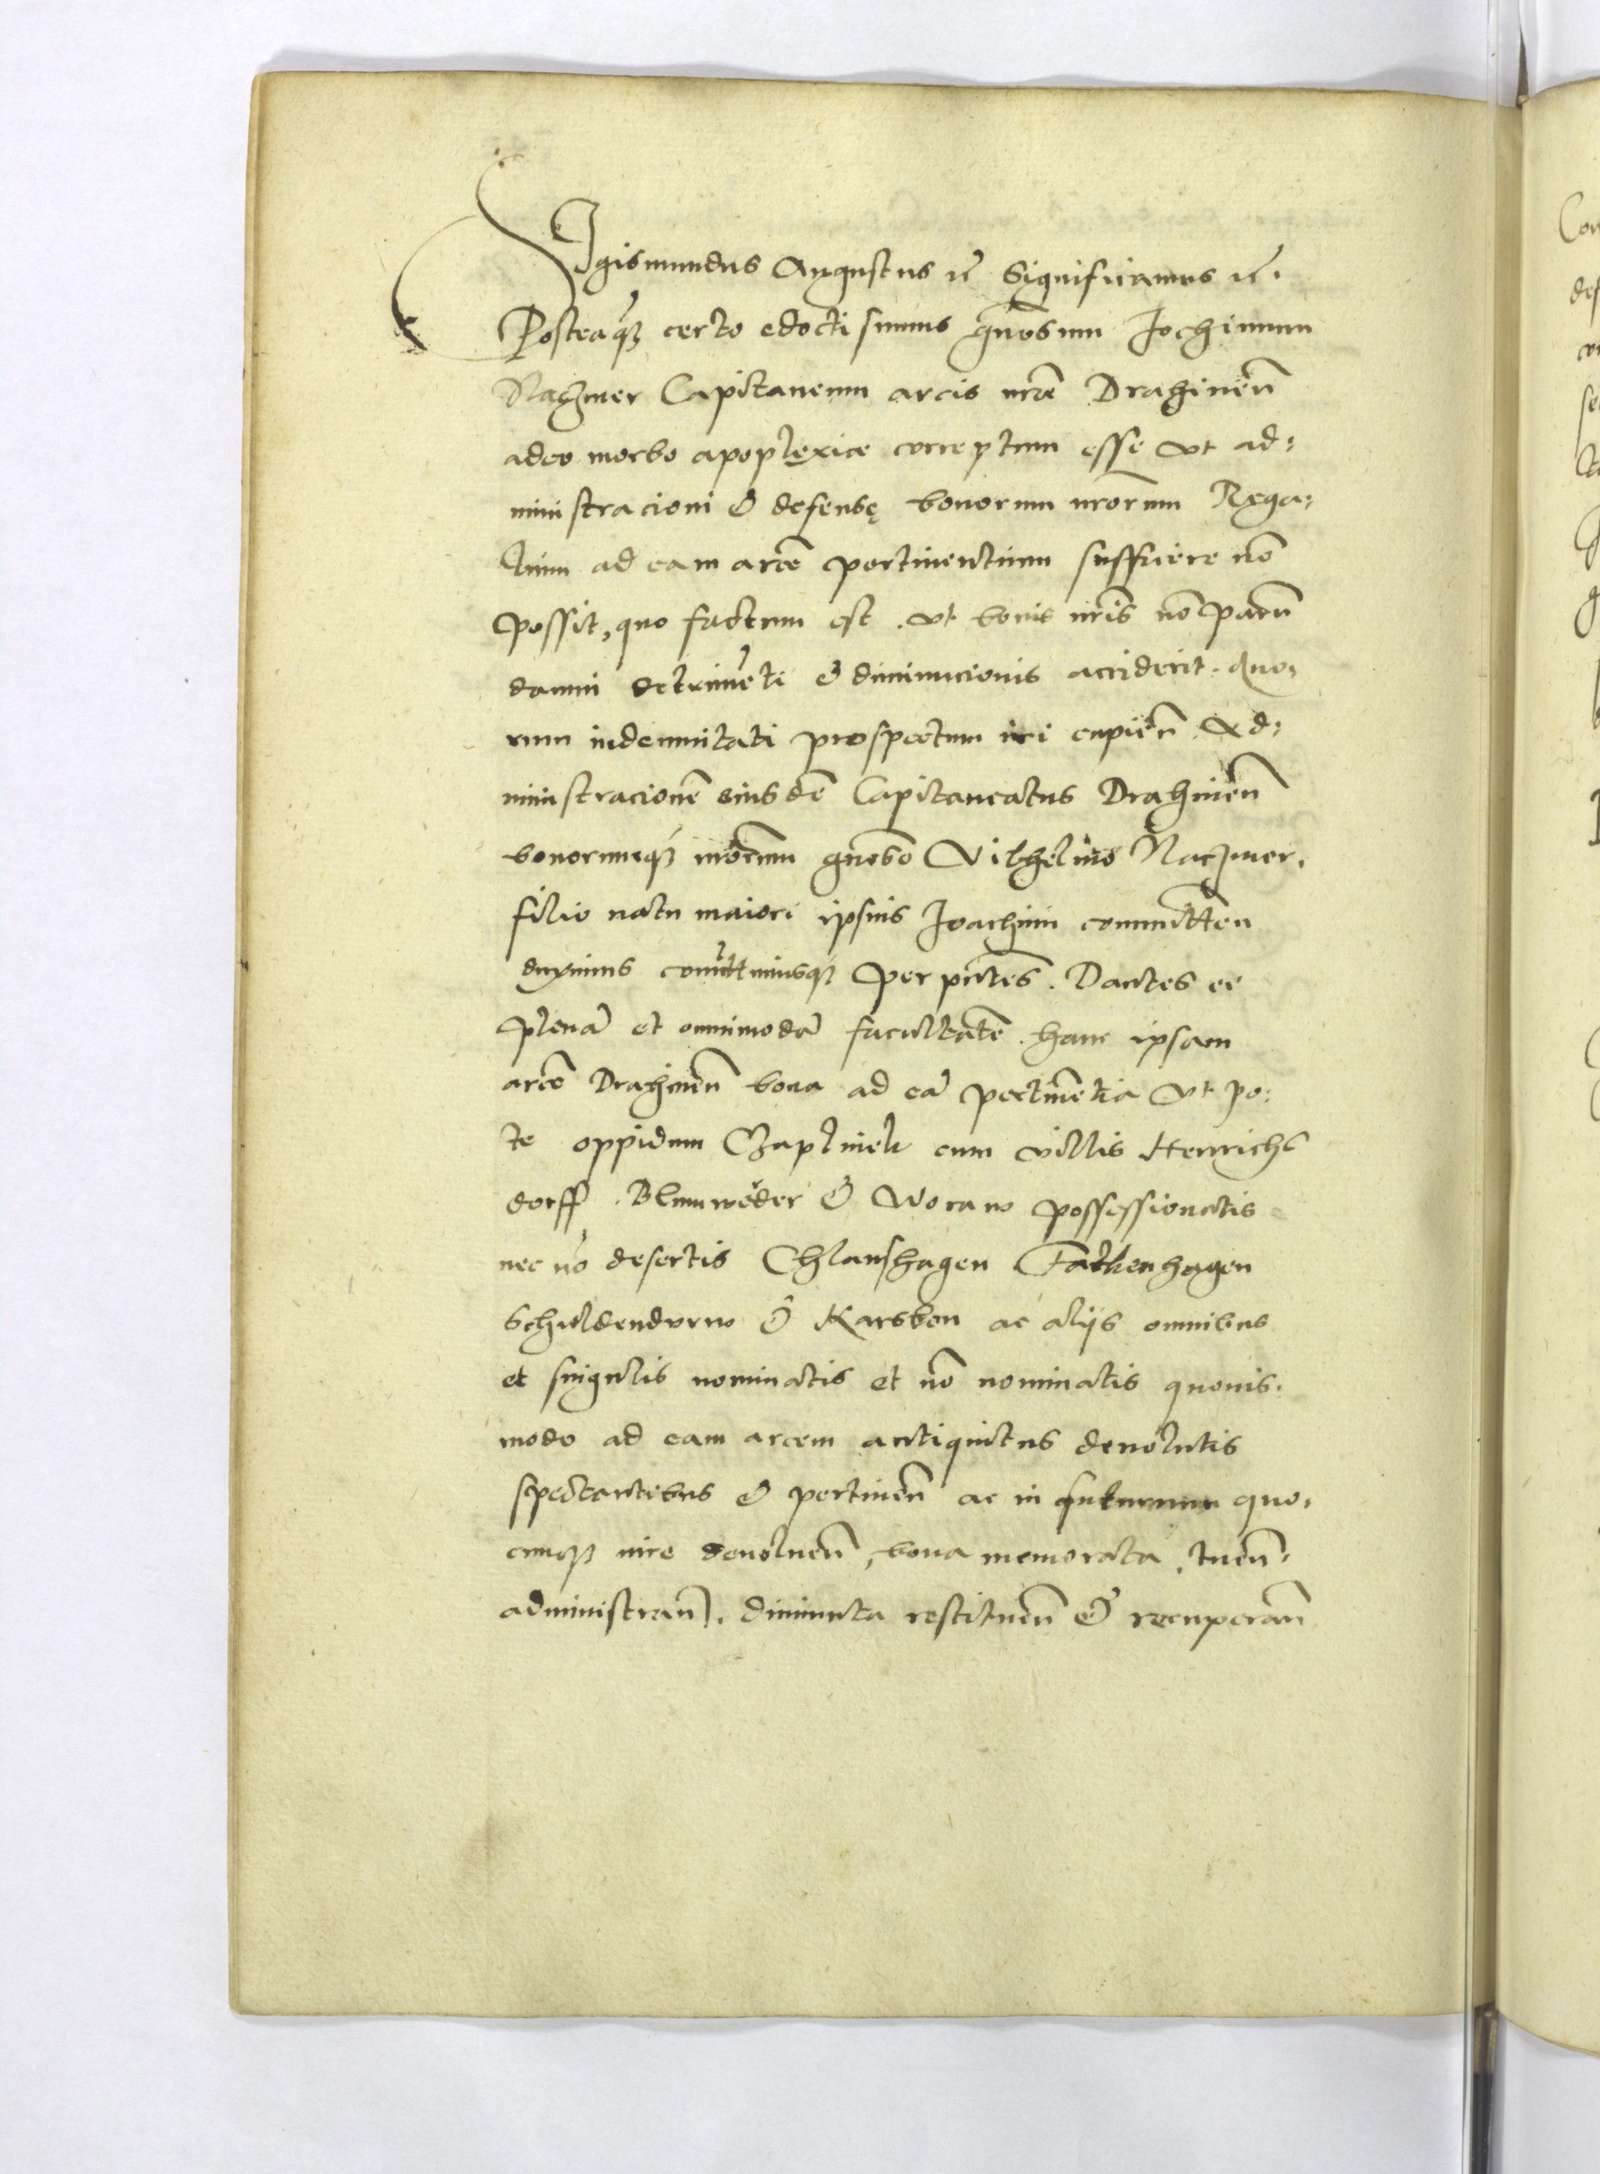 Sigismundus Augustus etc̄ Significamus etc̄.
Posteaq̃ꝫ certo edocti sumus gn̄osum Jochimum
Naczmer Capitaneum arcis nr̄ae Drahimen̄
adeo morbo apoplexiae correptum esse vt ad:
ministracioni & defensę bonorum nrōrum Rega:
lium ad eam arcē pertinentium sufficere nō
possit, quo factum est . vt bonis nrīs nō parū
damni detrimēti & diminucionis acciderit . quo,
rum indemnitati prospectum iri cupien̄ . Ad:
ministracionē eiusdē Capitaneatus Drahimen̄
bonorumqꝫ nrōrum gn̄oso Vilhelmo Naczmer.
filio natu maiori ipsius Joachimi committen̄
duximus comīttimusqꝫ per pn̄tes . Dantes ei
plenā et omnimodā facultatē . hanc ipsam
arcē Drahimen̄ bona ad eā pertinētia vt po:
te oppidum Czaplinek cum villis Henrichs
dorff . Blumwēder & Woraw possessionatis
nec nō desertis Chlanshagen Falkenhagen
Schuldendurw & Karsbon ac alijs omnibus
et singulis nominatis et nō nominatis quouis.
modo ad eam arcem antiquitus deuolutis
spectantibus & pertinen̄ ac in futurum quo,
cunqꝫ iure deuoluen̄, bona memorata . tuen̄.
administran̄. diminuta restituen̄ & recuperan̄